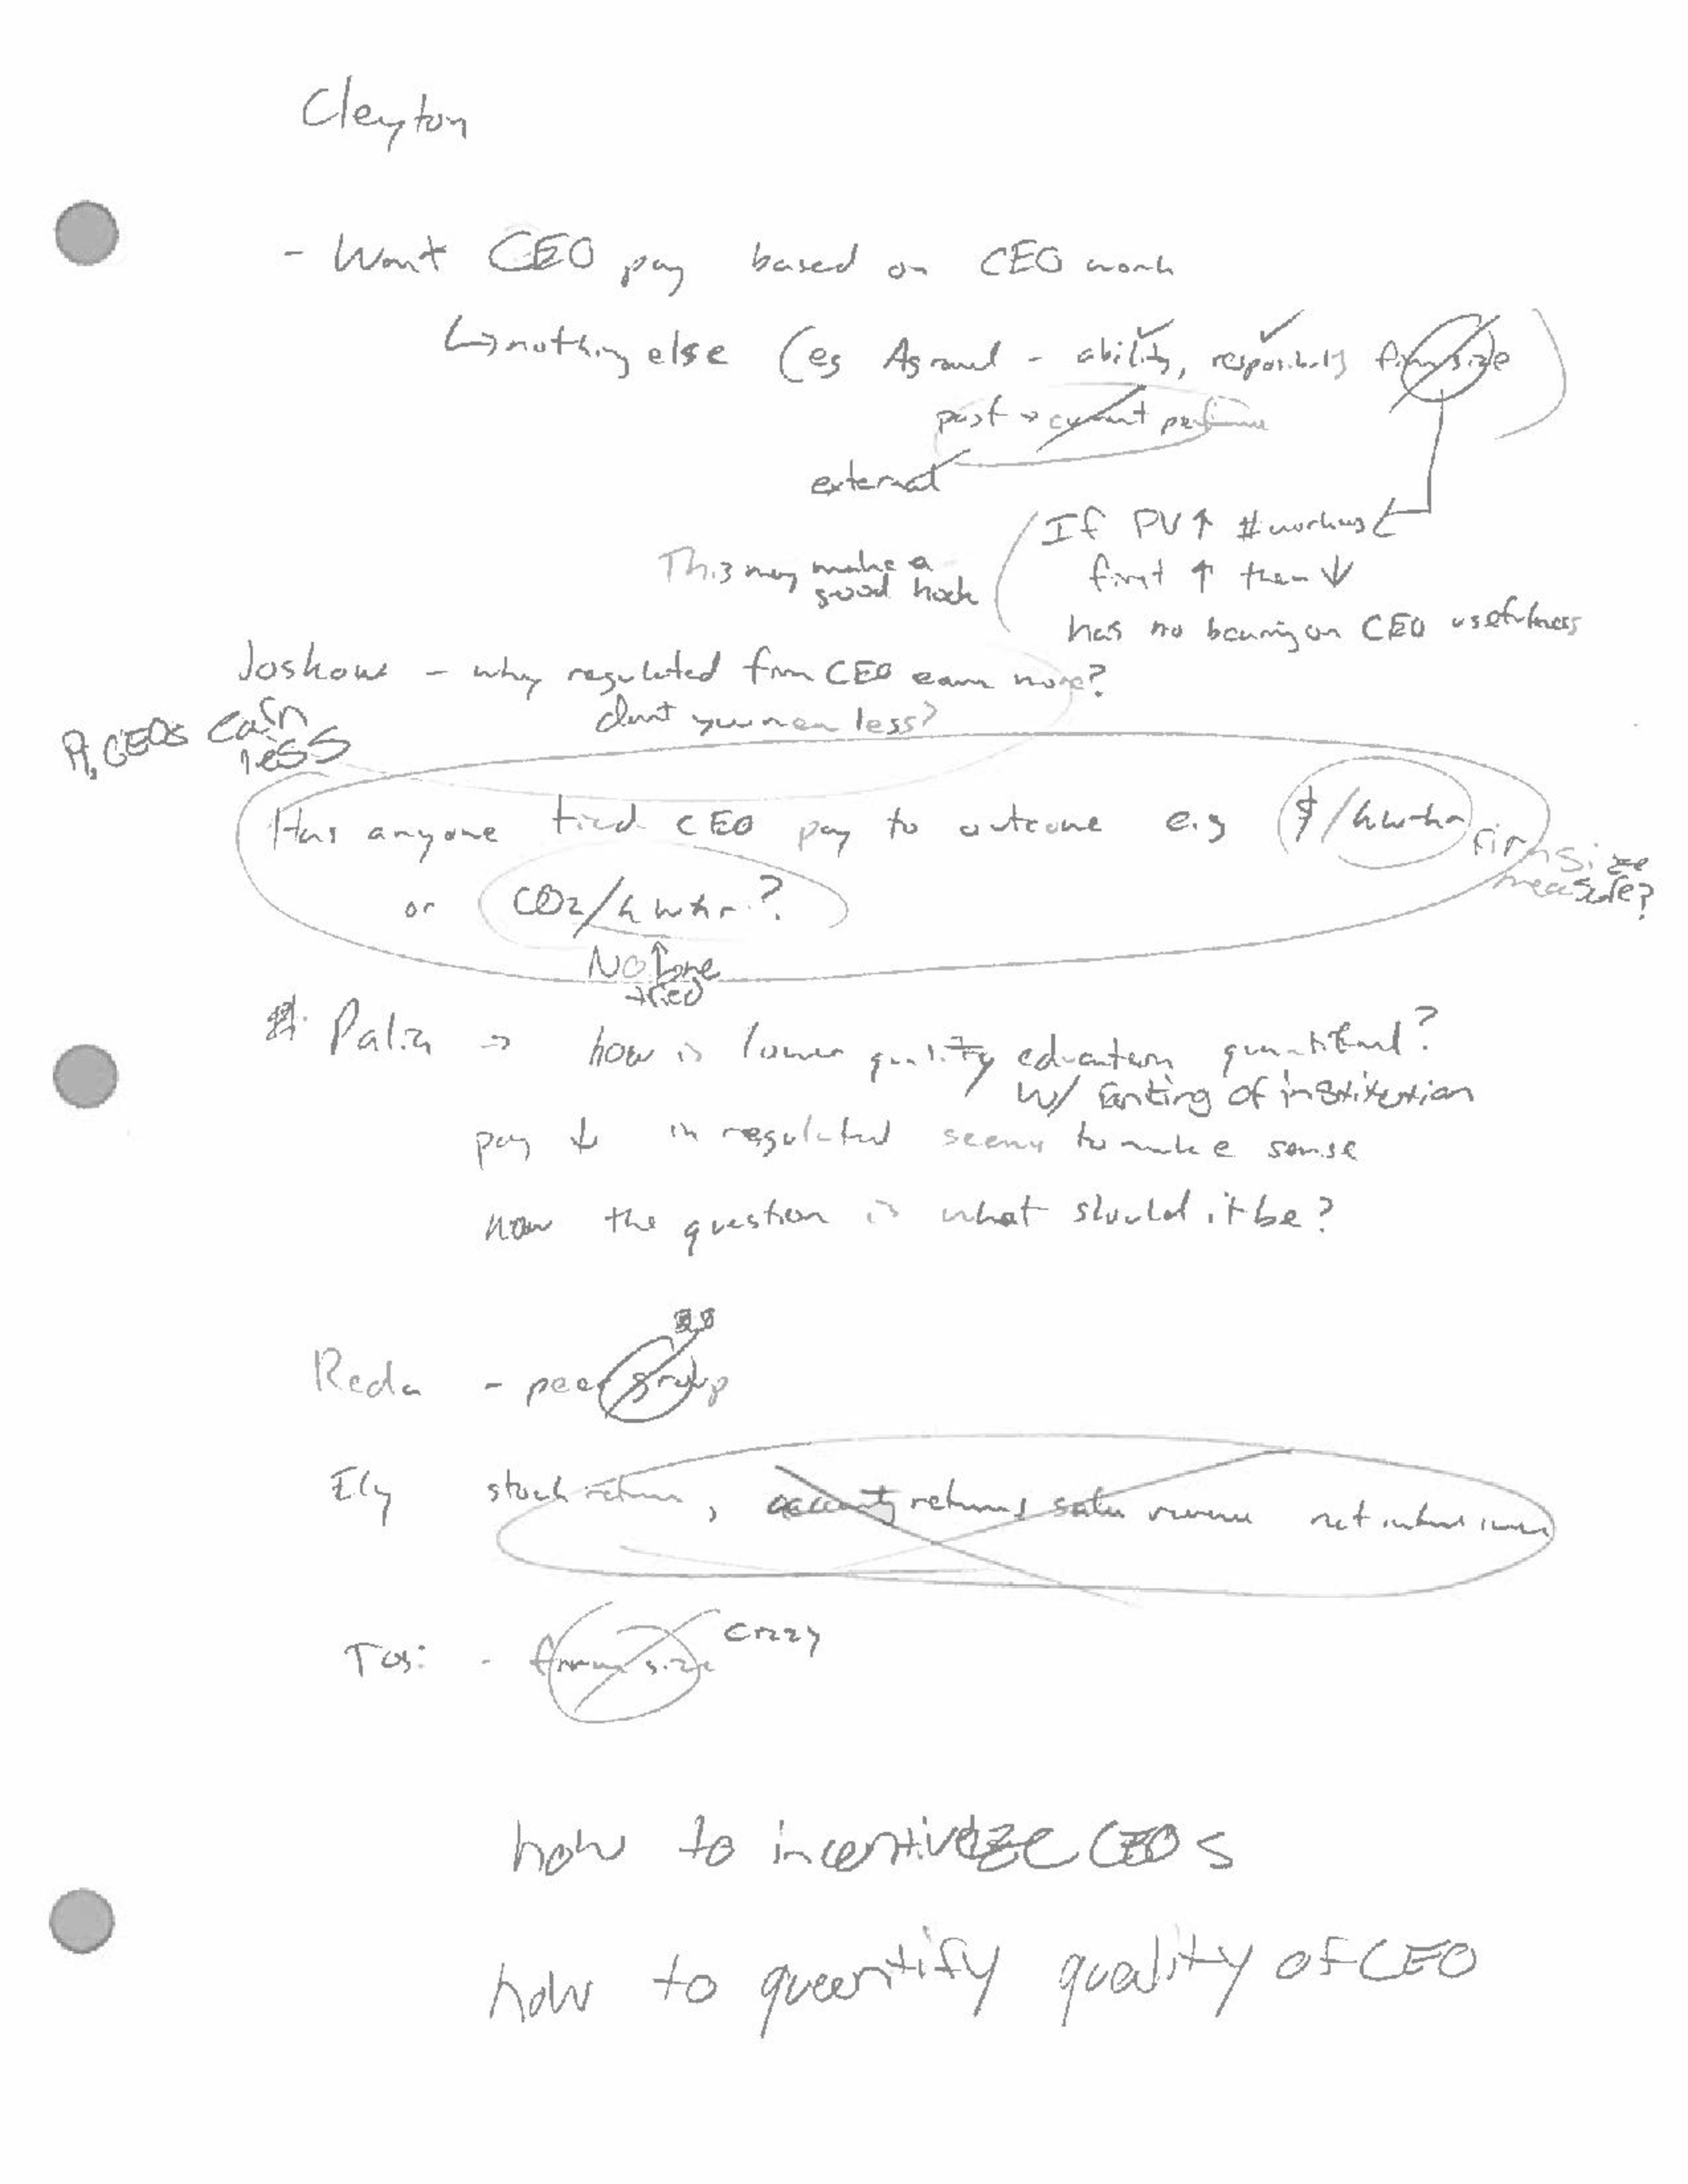 Cleyton
- Want CEO pay based on CEO work
↳ nothing else (eg Agrawal - ability, responsibility firm size)
past + current performance
external
If PV↑ #workers
first ↑ then ↓
This may make a
good hook
has no bearing on CEO usefulness
Joskow - why regulated firm CEO earn more?
don't you mean less?
CEOs earn
less
Has anyone tied CEO pay to outcome e.g $/kwhr
firm size
measure?
or CO2/kwhr?
No one
tried
Palia → how is lower quality education quantified?
w/ ranking of institution
pay ↓ in regulated seems to make sense
now the question is what should it be?
Reda - peer group
Ely stock return, accounty returns sales revenue net interest income
Tosi - firm size crazy
how to incentivize CEOs
how to quantify quality of CEO